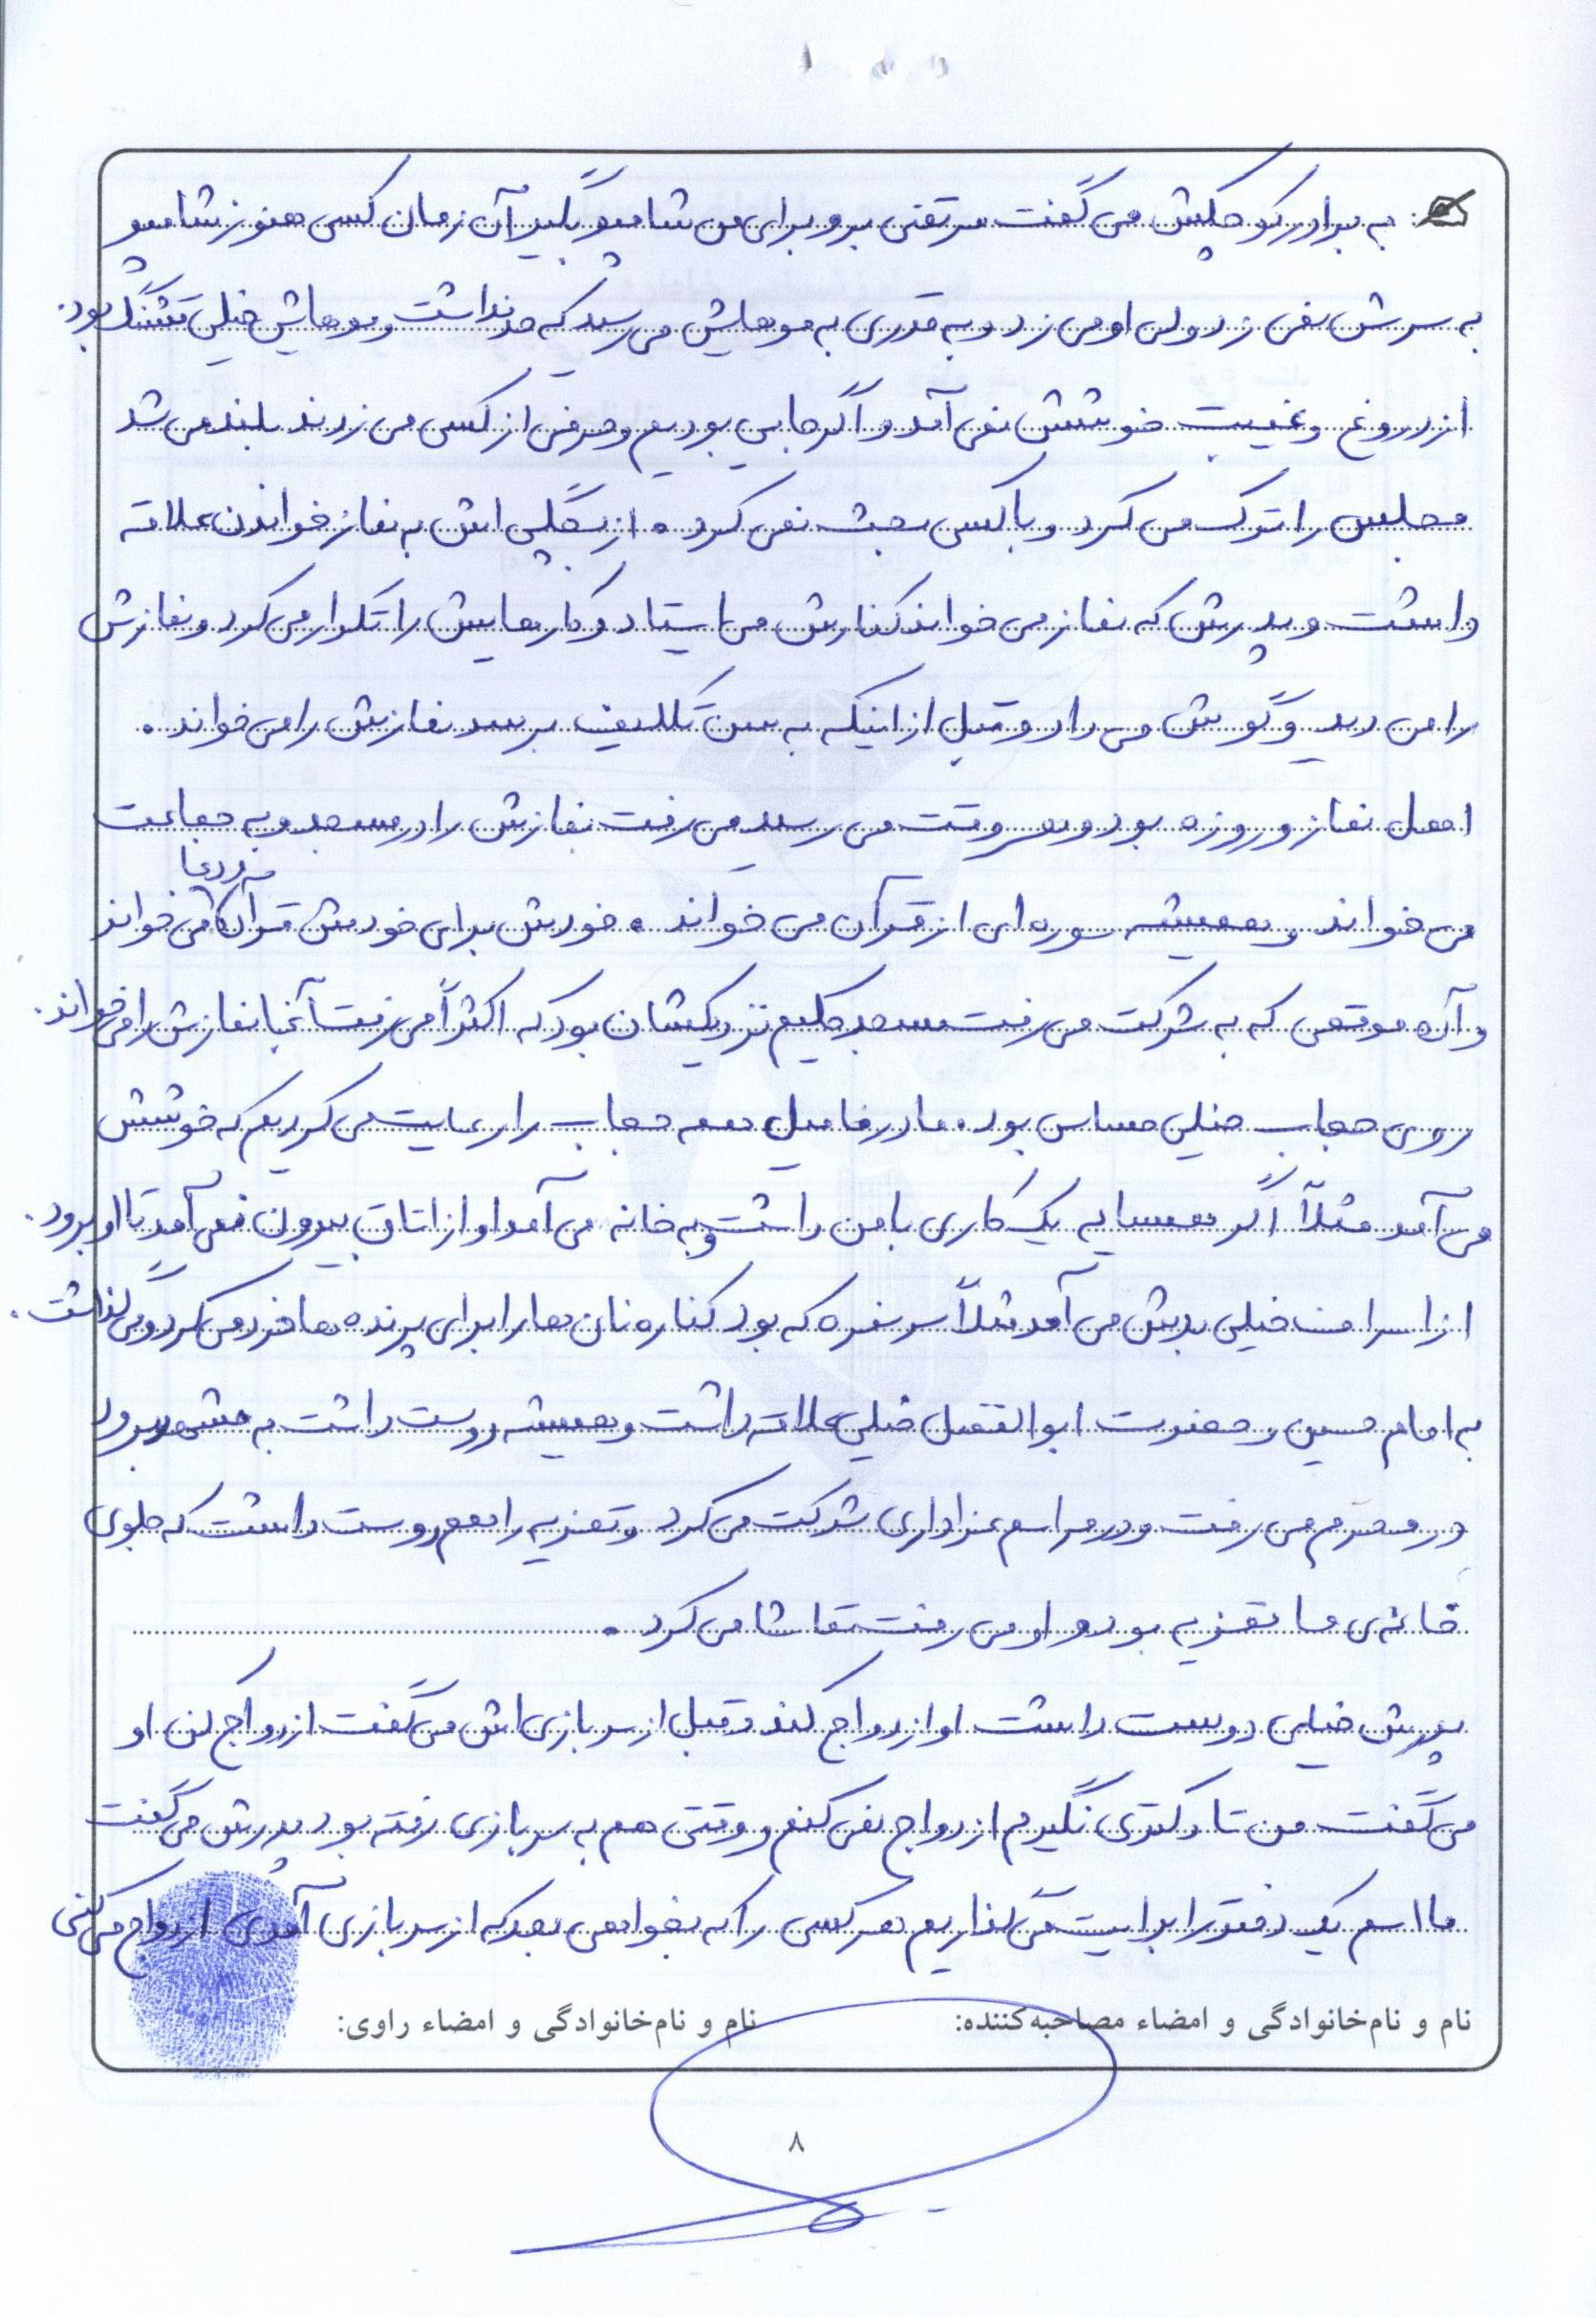 به برادر کوچکش می گفت مرتضی برو برای من شامپو بگیر آن زمان کسی هنوز شامپو
به سرش نمی زد ولی او می زد و به قدری به موهایش می رسید که حد نداشت و موهایش خیلی قشنگ بود.
از دروغ و غیبت خوشش نمی آمد و اگر جایی بودیم و حرفی از کسی می زدند بلند می شد
مجلس را ترک می کرد و با کسی بحث نمی کرد. از بچگی اش به نماز خواندن علاقه
داشت و پدرش که نماز می خواند کنارش می ایستاد و کارهایش را تکرار می کرد و نمازش
را می دید و گوش می داد و قبل از اینکه به سن تکلیف برسد نمازش را می خواند.
اهل نماز و روزه بود و هر وقت می رسید می رفت نمازش را در مسجد و به جماعت
می خواند و همیشه سوره ای از قرآن می خواند. خودش برای خودش قرآن و دعا می خواند
و آن موقعی که به شرکت می رفت مسجد حکیم نزدیکشان بود که اکثراً می رفت آنجا نمازش را می خواند.
روی حجاب خیلی حساس بود. ما در فامیل همه حجاب را رعایت می کردیم که خوشش
می آمد مثلاً اگر همسایه یک کاری با من داشت و به خانه می آمد او از اتاق بیرون نمی آمد تا او برود.
از اسراف خیلی بدش می آمد مثلاً سر سفره که بود کناره نان ها را برای پرنده ها خرد می کرد و می گذاشت.
به امام حسین و حضرت ابوالفضل خیلی علاقه داشت و همیشه دوست داشت به مشهد برود
در محرم می رفت و در مراسم عزاداری شرکت می کرد و تعزیه را هم دوست داشت که جلوی
خانه ی ما تعزیه بود و او می رفت تماشا می کرد.
پدرش خیلی دوست داشت او ازدواج کند و قبل از سربازی اش می گفت ازدواج کن او
می گفت من تا دکتری نگیرم ازدواج نمی کنم و وقتی هم به سربازی رفته بود پدرش می گفت
ما اسم یک دختر را برایت می گذاریم هر کسی را که بخواهی بعد که از سربازی آمدی ازدواج می کنی
نام و نام‌خانوادگی و امضاء مصاحبه‌کننده: نام و نام‌خانوادگی و امضاء راوی:
۸